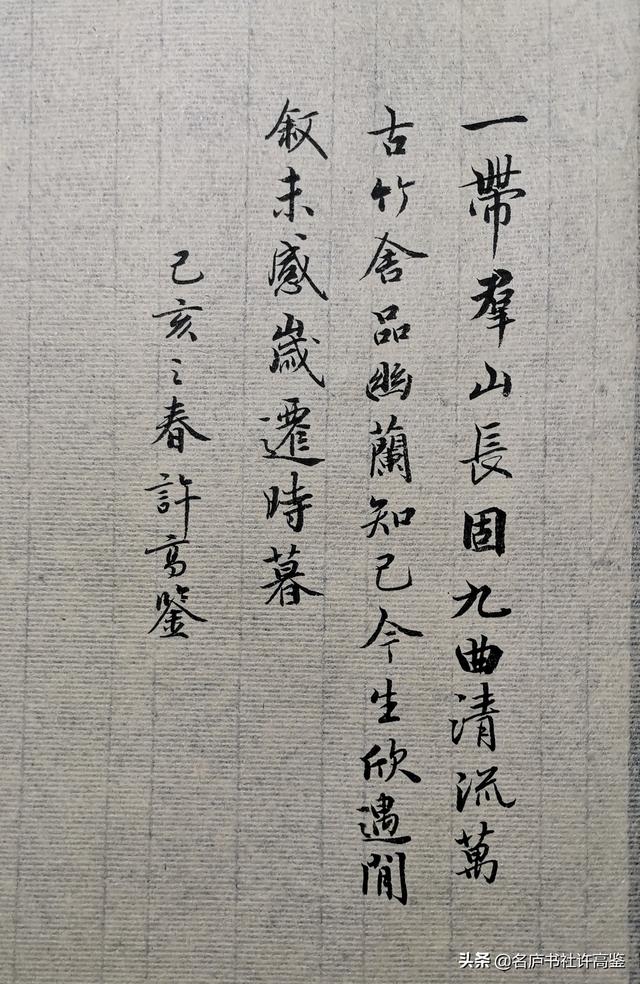 一帶羣山長固九曲清流萬
古竹舍品幽蘭知己今生欣遇閒
敘未感歲遷時暮
己亥之春許高鉴
头条 @名庐书社许高鉴